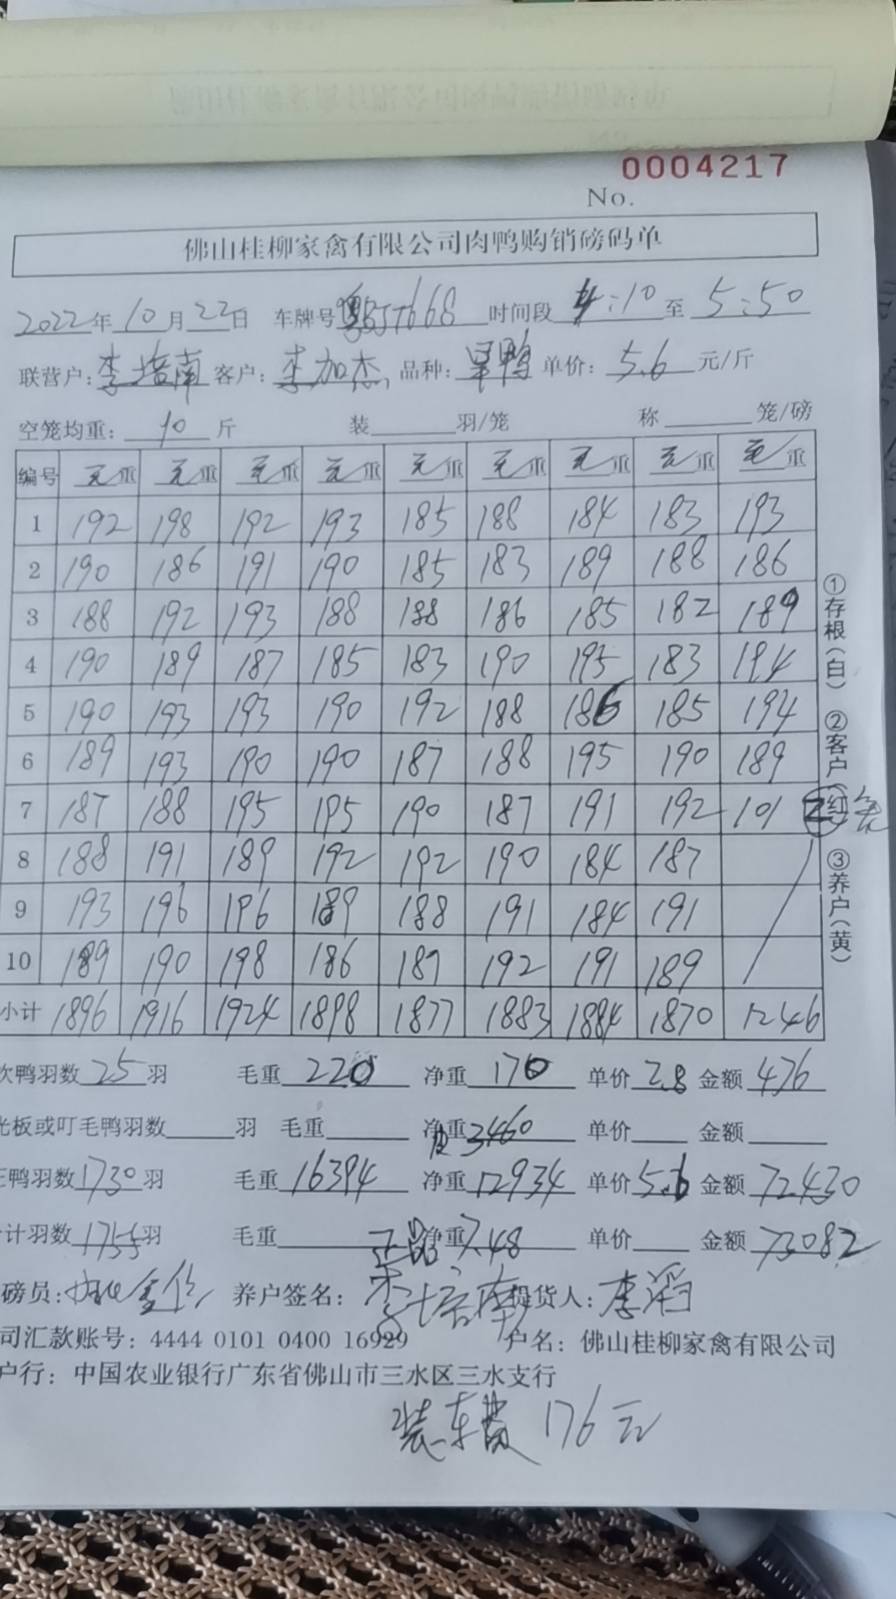 0004217
No.
佛山桂柳家禽有限公司肉鸭购销磅码单
2022年10月22日 车牌号 668 时间段 4:10 至 5:50
联营户:李培南 客户:李加杰 品种: 鸭 单价:5.6元/斤
空笼均重:10斤 装 羽/笼 称 笼/磅
编号 毛重 毛重 毛重 毛重 毛重 毛重 毛重 毛重 毛重
1 192 198 192 193 185 188 184 183 193
2 190 186 191 190 185 183 189 188 186
3 188 192 193 188 188 186 185 182 189
4 190 189 187 185 183 190 195 183 194
5 190 193 193 190 192 188 186 185 194
6 189 193 190 190 187 188 195 190 189
7 187 188 195 195 190 187 191 192 101
8 188 191 189 192 192 190 184 187
9 193 196 196 189 188 191 184 191
10 189 190 198 186 187 192 191 189
小计 1896 1916 1924 1898 1877 1883 1884 1870 1246
①存根(白) ②客户(红) ③养户(黄)
次鸭羽数 25 羽 毛重 220 净重 170 单价 2.8 金额 476
光板或叮毛鸭羽数 羽 毛重 净重 皮3460 单价 金额
正鸭羽数 1730 羽 毛重 16394 净重 12934 单价 5.6 金额 72430
合计羽数 1755 羽 毛重 净重 7.48 单价 金额 73082
磅员: 养户签名:李培南 提货人:李滔
司汇款账号: 4444 0101 0400 16929 户名: 佛山桂柳家禽有限公司
户行: 中国农业银行广东省佛山市三水区三水支行
装车费 176元